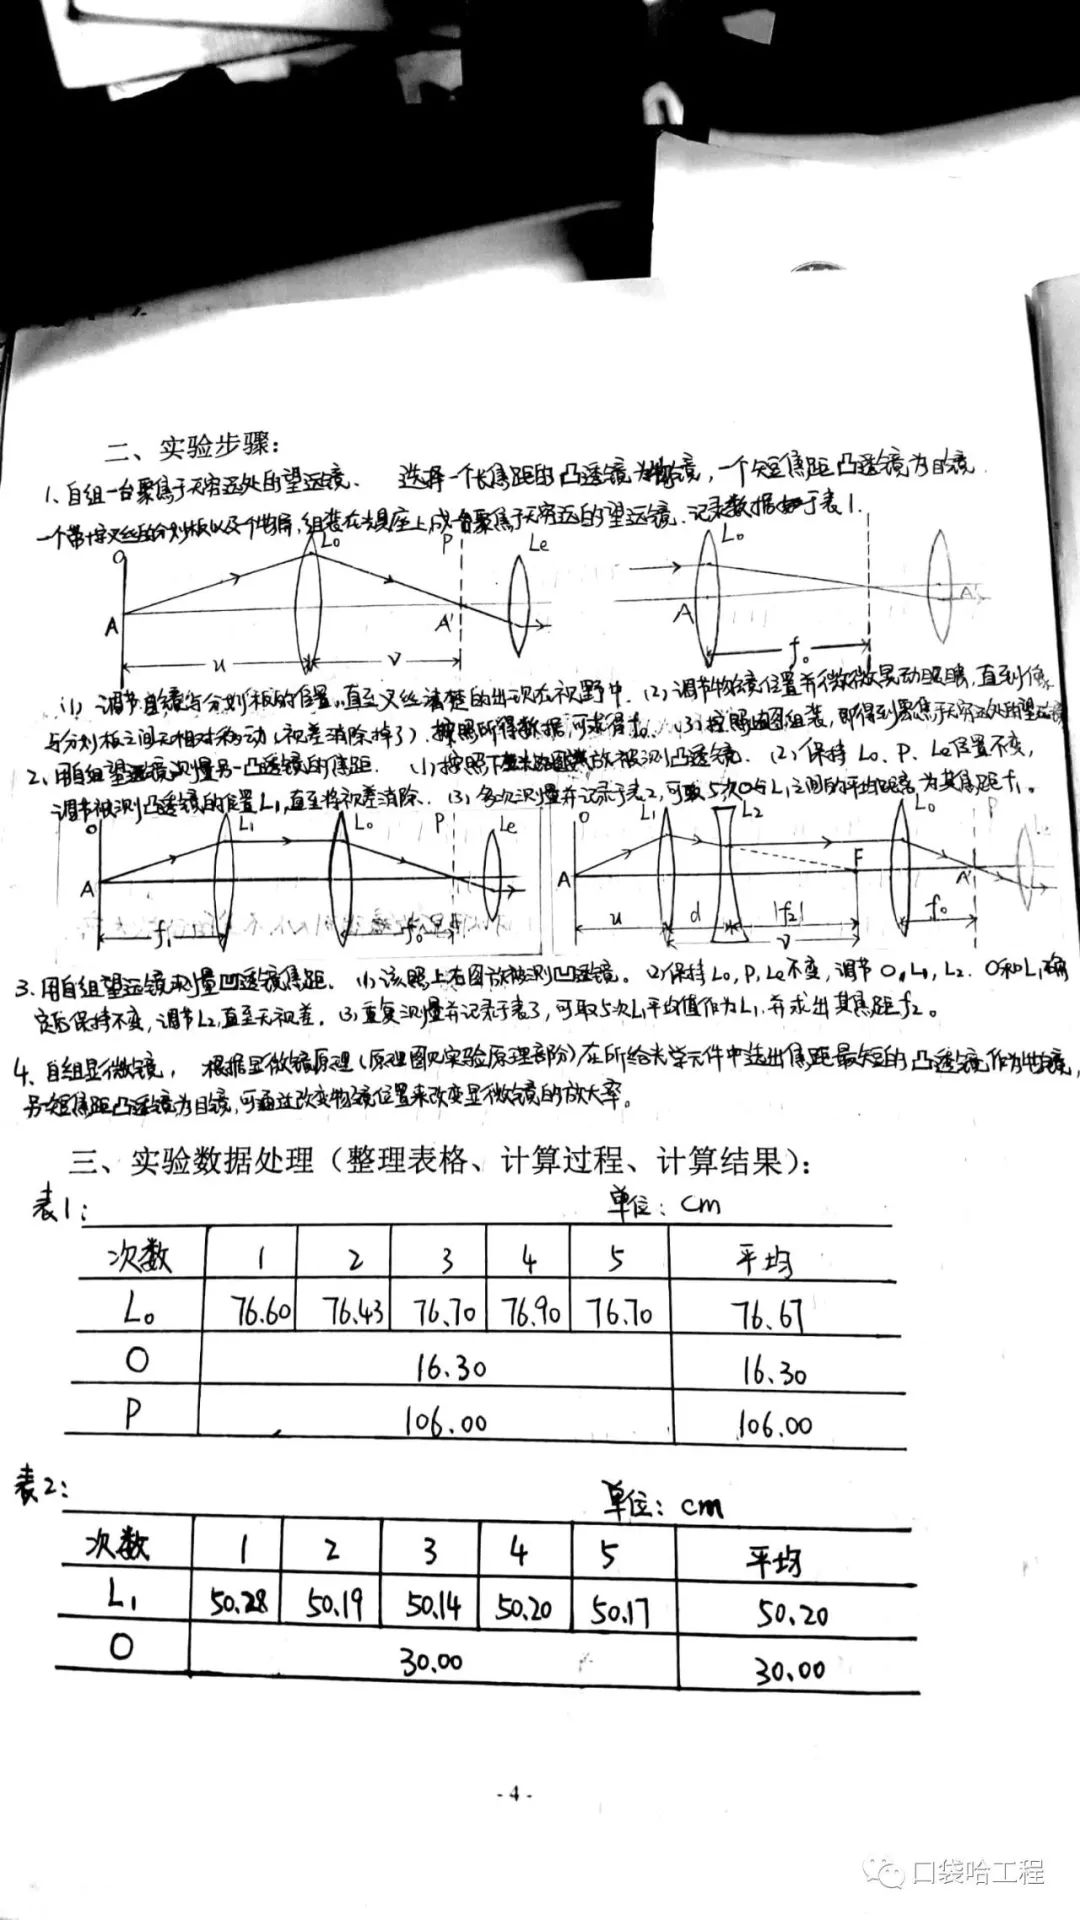 二、实验步骤:
1、自组一台聚焦于无穷远处的望远镜. 选择一个长焦距的凸透镜为物镜，一个短焦距凸透镜为目镜.
一个带十字叉丝的分划板以及个物屏,组装在光具座上成一台聚焦于无穷远的望远镜.记录数据于表1.
O L₀ P Le L₀
A A' A A'
u v f₀
(1) 调节目镜与分划板的位置,直至叉丝清楚的出现在视野中. (2) 调节物镜位置并微微晃动眼睛,直到像
与分划板之间无相对移动(视差消除掉了). 按照所得数据,可求得f₀. (3) 按照图组装,即得到聚焦于无穷远处的望远镜
2、用自组望远镜测量另一凸透镜的焦距. (1) 按照下放被测凸透镜. (2) 保持 L₀、P、Le位置不变,
调节被测凸透镜的位置L₁,直至将视差消除. (3) 多次测量并记录于表2,可取5次O与L₁之间的平均距离为其焦距f₁。
O L₁ L₀ P Le O L₁ L₂ L₀ P
A A F A'
f₁ f₀ u d |f₂| v f₀
3、用自组望远镜测量凹透镜焦距. (1) 该照上右图放被测凹透镜。(2) 保持L₀,P,Le不变,调节 O,L₁,L₂. O和L₁确
定后保持不变,调节L₂直至无视差. (3) 重复测量并记录于表3,可取5次L₁平均值作为L₁.并求出其焦距f₂。
4、自组显微镜, 根据显微镜原理(原理图见实验原理部分)在所给光学元件中选出焦距最短的凸透镜作为物镜,
另一短焦距凸透镜为目镜,可通过改变物镜位置来改变显微镜的放大率。
三、实验数据处理（整理表格、计算过程、计算结果）:
表1: 单位: cm
次数 1 2 3 4 5 平均
L₀ 76.60 76.43 76.70 76.90 76.70 76.67
O 16.30 16.30
P 106.00 106.00
表2: 单位: cm
次数 1 2 3 4 5 平均
L₁ 50.28 50.19 50.14 50.20 50.17 50.20
O 30.00 30.00
- 4 -
口袋哈工程